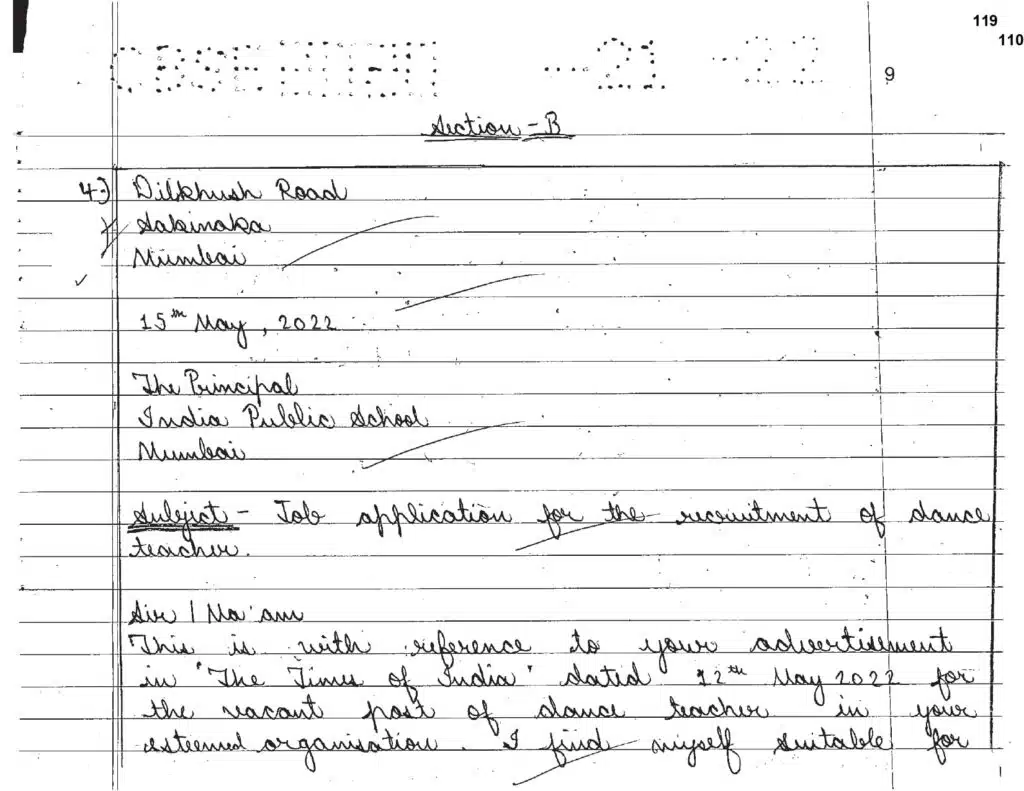 119
110
CBSE
21 - 22
9
Section - B
4.) Dilkhush Road
Sakinaka
Mumbai
15th May, 2022
The Principal
India Public School
Mumbai
Subject - Job application for the recruitment of dance
teacher.
Sir / Ma'am
This is with reference to your advertisement
in 'The Times of India' dated 12th May 2022 for
the vacant post of dance teacher in your
esteemed organisation. I find myself suitable for